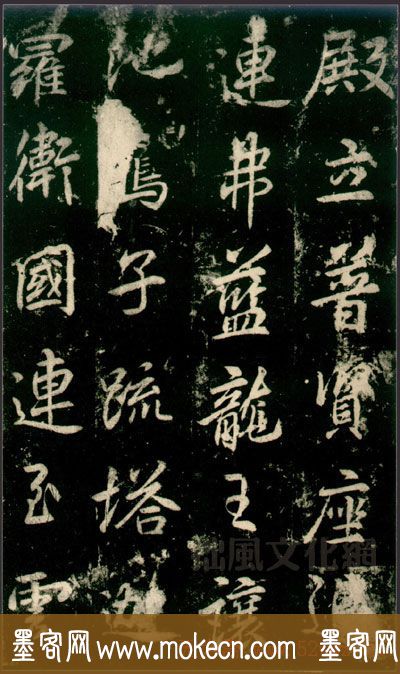 殿立普賢座
連弗藍龍王讓
池子疏塔
羅衛國連至
風文化網
墨客网 www.mokecn.com 墨客网